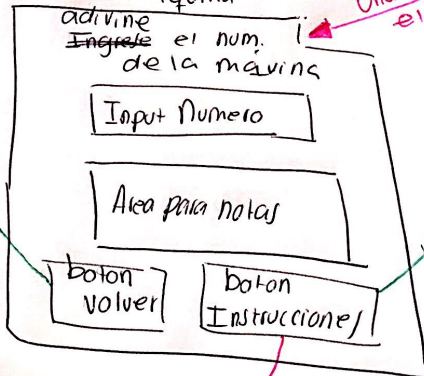 adivine
Ingrese el num.
de la máquina
Input Numero
Area para notas
boton
volver
boton
Instrucciones